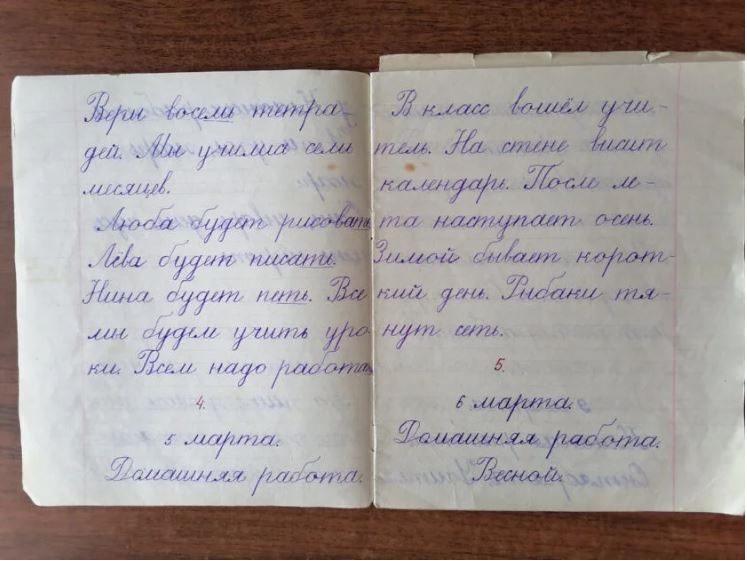 Веры восеми тетра-
дей. Мы училиа семь
месяцев.
Люба будет рисовать.
Лёва будет писать.
Нина будет петь. Все
мы будем учить уро
ки. Всем надо работа
4.
5 марта.
Домашняя работа.
В класс вошёл учи-
тель. На стене висит
календарь. После ле-
та наступает осень.
Зимой бывает корот-
кий день. Рыбаки тя-
нут сеть.
5.
6 марта.
Домашняя работа.
Весной.